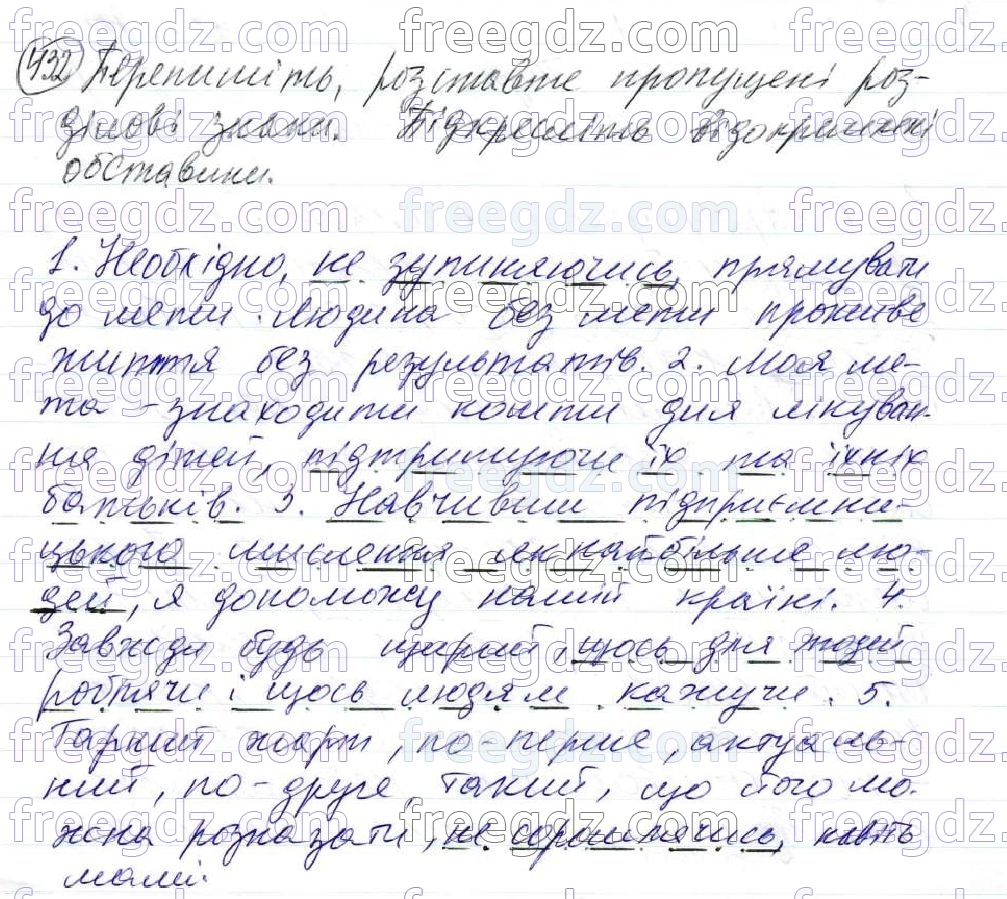 432 Перепишіть, розставте пропущені роз-
ділові знаки. Підкресліть відокремлені
обставини.
1. Необхідно, не зупиняючись, прямувати
до мети. Людина без мети проживе
життя без результатів. 2. Моя ме-
та - знаходити кошти для лікуван-
ня дітей, підтримуючи їх та їхніх
батьків. 3. Навчивши підприємни-
цького мислення якнайбільше лю-
дей, я допоможу нашій країні. 4.
Завжди будь щирий, щось для людей
роблячи і щось людям кажучи. 5.
Гарний жарт, по-перше, актуаль-
ний, по-друге, такий, що його мо-
жна розказати, не соромлячись, навіть
мамі.